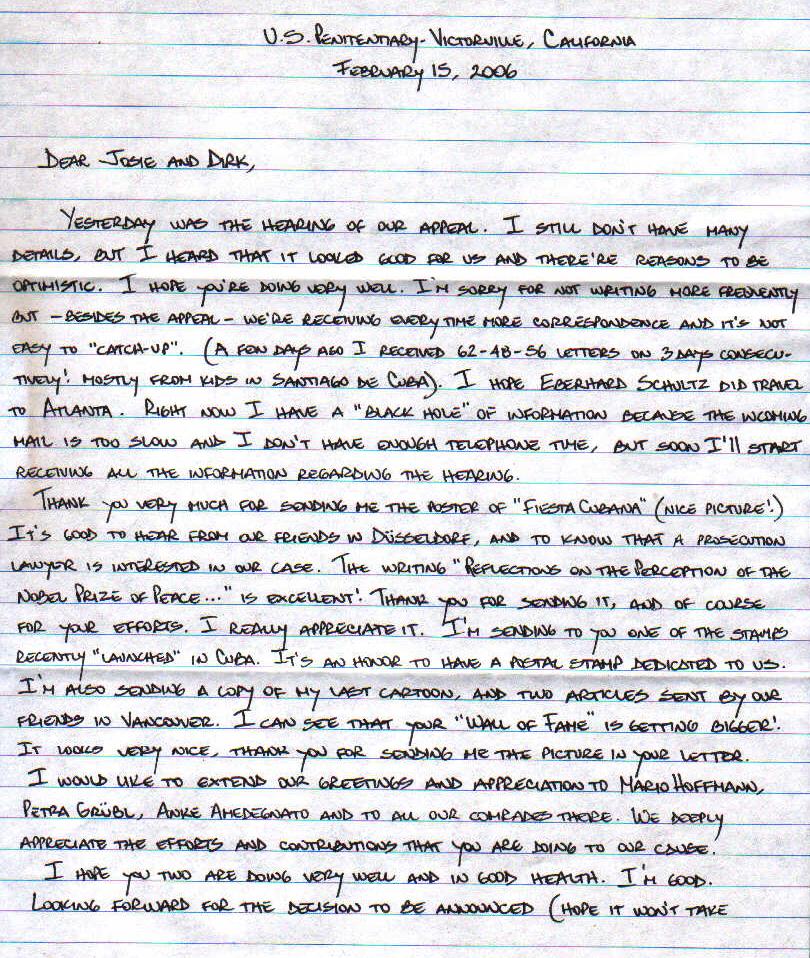 U.S. PENITENTIARY - VICTORVILLE, CALIFORNIA
FEBRUARY 15, 2006
DEAR JOSIE AND DIRK,
YESTERDAY WAS THE HEARING OF OUR APPEAL. I STILL DON'T HAVE MANY
DETAILS, BUT I HEARD THAT IT LOOKED GOOD FOR US AND THERE'RE REASONS TO BE
OPTIMISTIC. I HOPE YOU'RE DOING VERY WELL. I'M SORRY FOR NOT WRITING MORE FREQUENTLY
BUT - BESIDES THE APPEAL - WE'RE RECEIVING EVERY TIME MORE CORRESPONDENCE AND IT'S NOT
EASY TO "CATCH-UP". (A FEW DAYS AGO I RECEIVED 62-48-56 LETTERS ON 3 DAYS CONSECU-
TIVELY! MOSTLY FROM KIDS IN SANTIAGO DE CUBA). I HOPE EBERHARD SCHULTZ DID TRAVEL
TO ATLANTA. RIGHT NOW I HAVE A "BLACK HOLE" OF INFORMATION BECAUSE THE INCOMING
MAIL IS TOO SLOW AND I DON'T HAVE ENOUGH TELEPHONE TIME, BUT SOON I'LL START
RECEIVING ALL THE INFORMATION REGARDING THE HEARING.
THANK YOU VERY MUCH FOR SENDING ME THE POSTER OF "FIESTA CUBANA" (NICE PICTURE!)
IT'S GOOD TO HEAR FROM OUR FRIENDS IN DÜSSELDORF, AND TO KNOW THAT A PROSECUTION
LAWYER IS INTERESTED IN OUR CASE. THE WRITING "REFLECTIONS ON THE PERCEPTION OF THE
NOBEL PRIZE OF PEACE..." IS EXCELLENT! THANK YOU FOR SENDING IT, AND OF COURSE
FOR YOUR EFFORTS. I REALLY APPRECIATE IT. I'M SENDING TO YOU ONE OF THE STAMPS
RECENTLY "LAUNCHED" IN CUBA. IT'S AN HONOR TO HAVE A POSTAL STAMP DEDICATED TO US.
I'M ALSO SENDING A COPY OF MY LAST CARTOON, AND TWO ARTICLES SENT BY OUR
FRIENDS IN VANCOUVER. I CAN SEE THAT YOUR "WALL OF FAME" IS GETTING BIGGER!
IT LOOKS VERY NICE, THANK YOU FOR SENDING ME THE PICTURE IN YOUR LETTER.
I WOULD LIKE TO EXTEND OUR GREETINGS AND APPRECIATION TO MARIO HOFFMANN,
PETRA GRÜBL, ANKE AMEDEGNATO AND TO ALL OUR COMRADES THERE. WE DEEPLY
APPRECIATE THE EFFORTS AND CONTRIBUTIONS THAT YOU ARE DOING TO OUR CAUSE.
I HOPE YOU TWO ARE DOING VERY WELL AND IN GOOD HEALTH. I'M GOOD.
LOOKING FORWARD FOR THE DECISION TO BE ANNOUNCED (HOPE IT WON'T TAKE